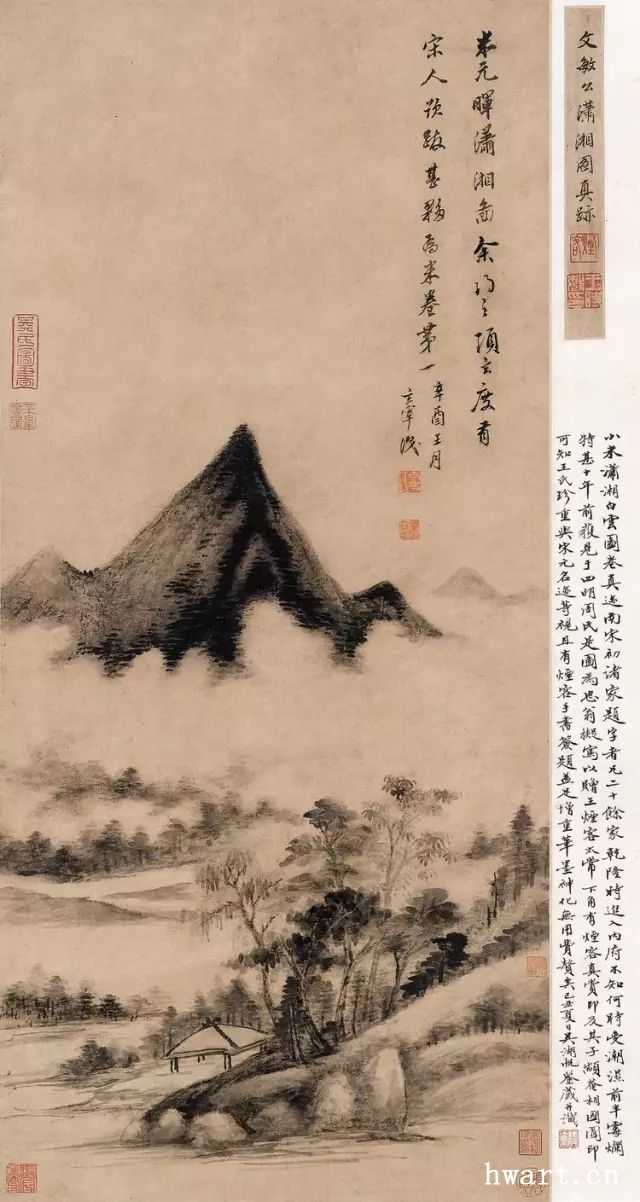 米元暉瀟湘圖余得之項玄度有
宋人題跋甚夥為米卷第一
辛酉王月
玄宰識
文敏公瀟湘圖真跡
小米瀟湘白雲圖卷真迹南宋初諸家題字者凡二十餘家乾隆時進入内府不知何時受潮濕前半霉爛
特甚十年前獲見于四明周氏是圖為思翁擬寫以贈王煙客太常下角有煙客真賞印及其子顓菴相國圖印
可知王氏珍重與宋元名迹等視且有煙客手書簽題並足增重華墨神化無用費贅矣己丑夏日吳湖帆鑒藏并識
hwart.cn